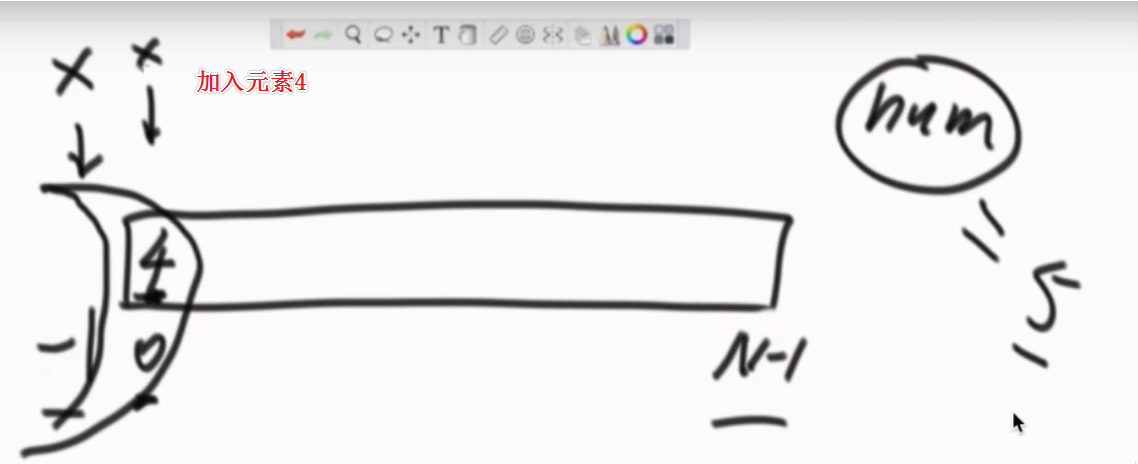 X x
加入元素4
num
4
5
-1 0
N-1